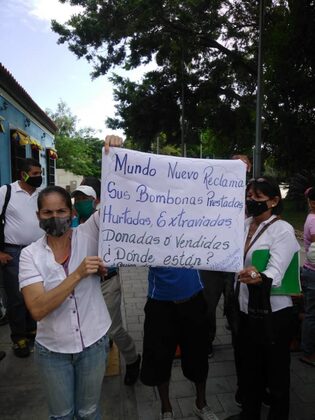 Mundo Nuevo Reclama
Sus Bombonas Prestadas
Hurtadas, Extraviadas
Donadas ó Vendidas
¿Dónde están?